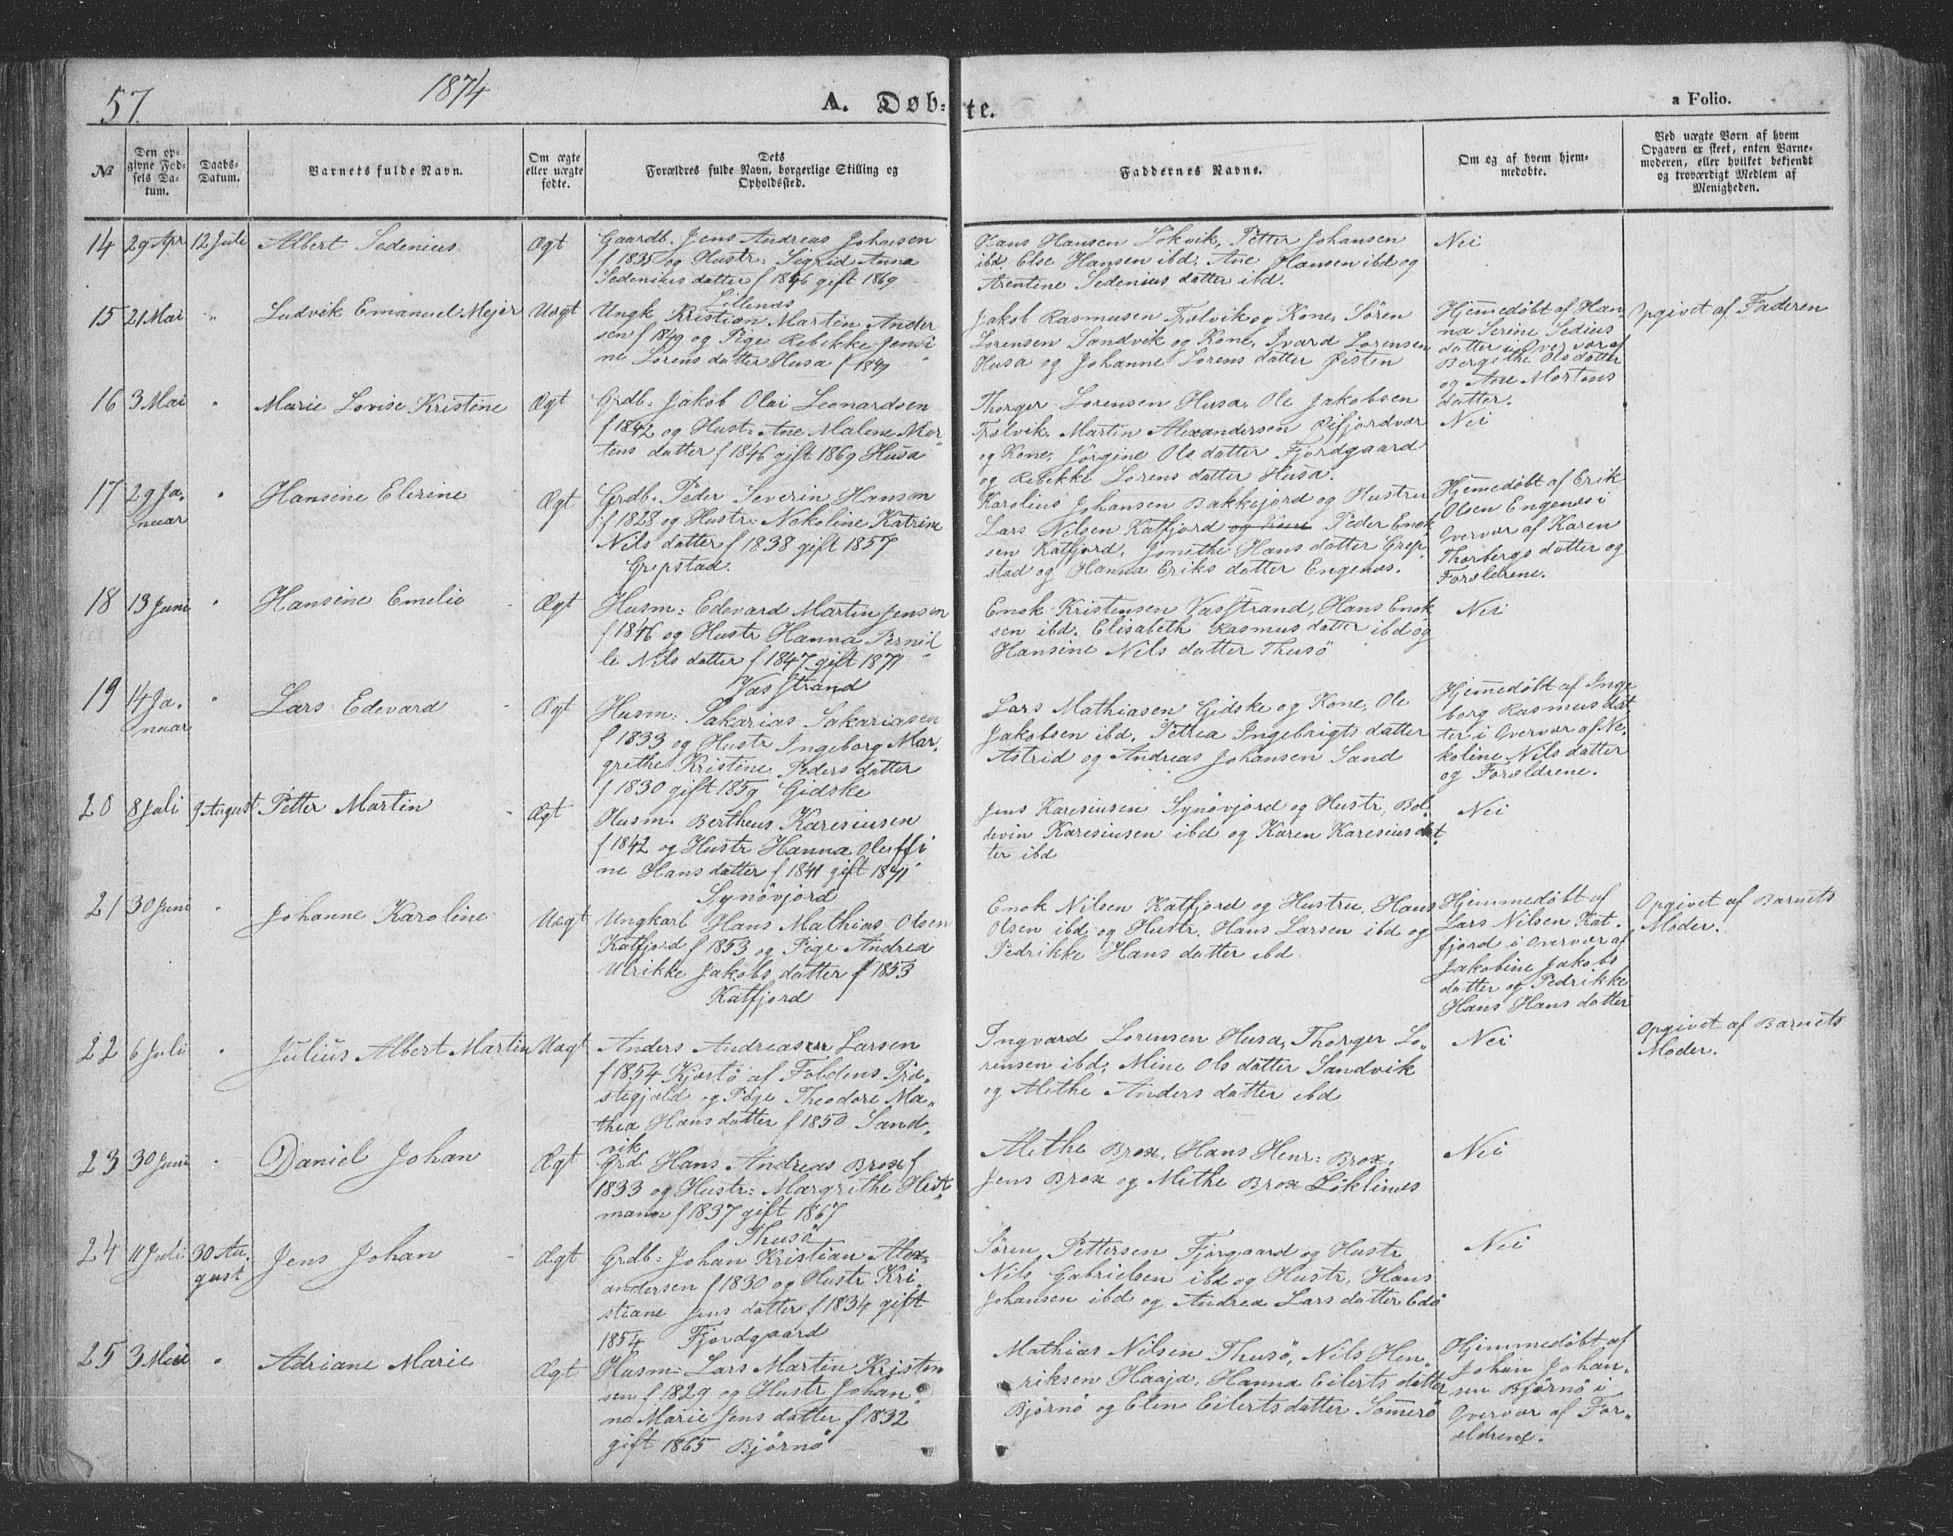 57.
1874
A. Døb-
te.
a Folio.
№
Den op-
givne Fød-
sels Da-
tum.
Daabs-
Datum.
Barnets fulde Navn.
Om ægte
eller uægte
fødte.
Dets
Forældres fulde Navn, borgerlige Stilling og
Opholdssted.
Faddernes Navne.
Om og af hvem hjem-
medøbte.
Ved uægte Born af hvem
Opgaven er skeet, enten Barne-
moderen, eller hvilket bekjendt
og troværdigt Medlem af
Menigheden.
14 29 Apr 12 Juli Albert Sedenius Ægt
Gaardb. Jens Andreas Johnsen
f 1835 og Hustr: Sigrid Anna
Sedenius datter f 1846 gift 1869
Lillenæs
Hans Hansen Sökvik, Petter Johansen
ibd, Else Hansen ibd, Ane Hansen ibd og
Arentine Sedenius datter ibd.
Nei
15 21 Mai " Ludvik Emanuel Mejer Uægt
Ungk Kristian Martin Ander
sen f 1849 og Pige Rebekke Jensi
ne Lorens datter Husa f
Jakob Rasmusen Trolvik og Kone, Sören
Lorensen Sandvik og Kone, Ivard Lorensen
Husa og Johanne Lorens datter Öisten
Hjemmedöbt af Han
na Serine Sedius
datter i Overvær af
Bergithe Ols datter
og Ane Mortens
datter.
Opgivet af Faderen
16 3 Mai " Marie Lovise Kristine Ægt
Grdb. Jakob Olai Leonardsen
f 1842 og Hust: Ane Malene Mor
tens datter f 1846 gift 1869 Husa
Thorger Lorensen Husa, Ole Jakobsen
Trolvik, Martin Alexandersen
og Kone, Jörgine Ols datter Fjordgaard
og Rebekke Lorens datter Husa.
Nei
17 29 Ja-
nuar " Hansine Elerine Ægt
Grdb. Peder Severin Hanson
f 1828 og Hustr: Nokoline Katrine
Nils datter f 1838 gift 1857
Grepstad.
Karolius Johansen Bakkejord og Hustru
Lars Nilsen Katfjord og Kone Peder Enok
sen Katfjord, Jonethe Hans datter Grep
stad og Hanna Eriks datter Engenes.
Hjemmedöbt af Erik
Olsen Engenes i
Overvær af Karen
Thorbergs datter og
Forældrene.
18 13 Juni " Hansine Emelie Ægt
Husm: Edevard Martin Jensen
f 1846 og Hustr Hanna Pernil
le Nils datter f 1847 gift 1871
Vasstrand
Enok Kristensen Vasstrand, Hans Enok
sen ibd. Elisabeth Rasmus datter ibd og
Hansine Nils datter Thusö
Nei
19 14 Ja-
nuar " Lars Edevard Ægt
Husm: Sakarias Sakariasen
f 1833 og Hustr Ingeborg Mar-
grethe Kristine Peders datter
f 1830 gift 1859 Gidske
Lars Mathiasen Gidske og Kone, Ole
Jakobsen ibd, Petrea Ingebrigts datter
Astrid og Andreas Johansen Sand
Hjemmedöbt af Inge
borg Rasmus dat
ter i Overvær af Ne-
koline Nils datter
og Forældrene.
20 8 Juli 9 August Petter Martin Ægt
Husm. Bertheus Karesiusen
f 1842 og Hustr Hanna Oluffi
ne Hans datter f 1841 gift 1871
Synövjord
Jens Karesiusen Synövjord og Hustr, Bol-
devin Karesiusen ibd og Karen Karesius dat-
ter ibd
Nei
21 30 Juni " Johanne Karoline Uægt
Ungkarl Hans Mathias Olsen
Katfjord f 1853 og Pige Andrea
Ulrikke Jakobs datter f 1853
Katfjord
Enok Nilsen Katfjord og Hustru, Hans
Olsen ibd og Hustr, Hans Larsen ibd og
Pedrikke Hans datter ibd
Hjemmedöbt af
Lars Nilsen Kat-
fjord i Overvær af
Jakobine Jakobs
datter og Pedrikke
Hans Hans datter
Opgivet af Barnets
Moder.
22 6 Juli " Julius Albert Martin Uægt
Anders Andreasen Larsen
f 1854 Kjærtö af Foldens Præ-
stegjæld og Pige Theodore Ma-
thea Hans datter f 1850 Sand-
vik
Ingvard Lorensen Husa, Thorger Lo-
rensen ibd, Mine Ols datter Sandvik
og Methe Anders datter ibd
Nei
Opgivet af Barnets
Moder.
23 30 Juni " Daniel Johan Ægt
Grd Hans Andreas Brox f
1833 og Hustr: Margrethe Heit
mann f 1837 gift 1867
Thusö
Methe Brox, Hans Henr: Brox,
Jens Brox og Methe Brox Löklines
Nei
24 11 Juli 30 Au-
gust Jens Johan Ægt
Grdb: Johan Kristian Alex
andersen f 1830 og Hustr Kri-
stiane Jens datter f 1834 gift
1854 Fjordgaard
Sören Pettersen Fjorgaard og Hustr
Nils Gabrielsen ibd og Hustr, Hans
Johansen ibd og Andrea Lars datter Edö
Nei
25 3 Mai " Adriane Marie Ægt
Husm: Lars Martin Kristen
sen f 1829 og Hustr Johan
na Marie Jens datter f 1832
gift 1865 Björnö
Mathias Nilsen Thusö, Nils Hen-
riksen Haaja, Hanna Eilerts datter
Björnö og Elen Eilerts datter Sommerö
Hjimmedöbt af
Johan Johan-
sen Björnö i
Overvær af For-
ældrene.